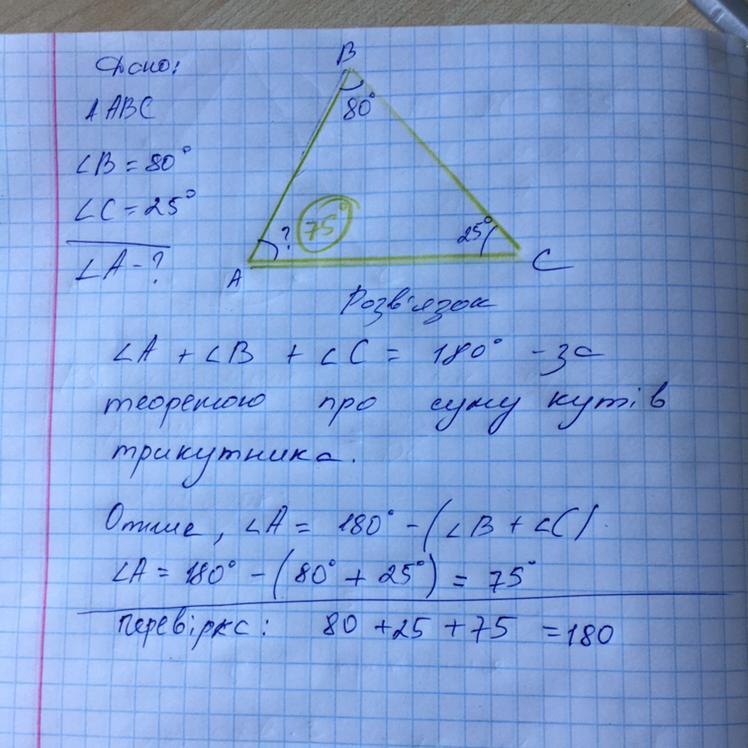 Дано:
Δ ABC
∠B = 80°
∠C = 25°
∠A - ?
B
80°
75°
?
25°
A
C
Розв'язок
∠A + ∠B + ∠C = 180° - за
теоремою про суму кутів
трикутника.
Отже, ∠A = 180° - (∠B + ∠C).
∠A = 180° - (80° + 25°) = 75°
Перевірка: 80 + 25 + 75 = 180